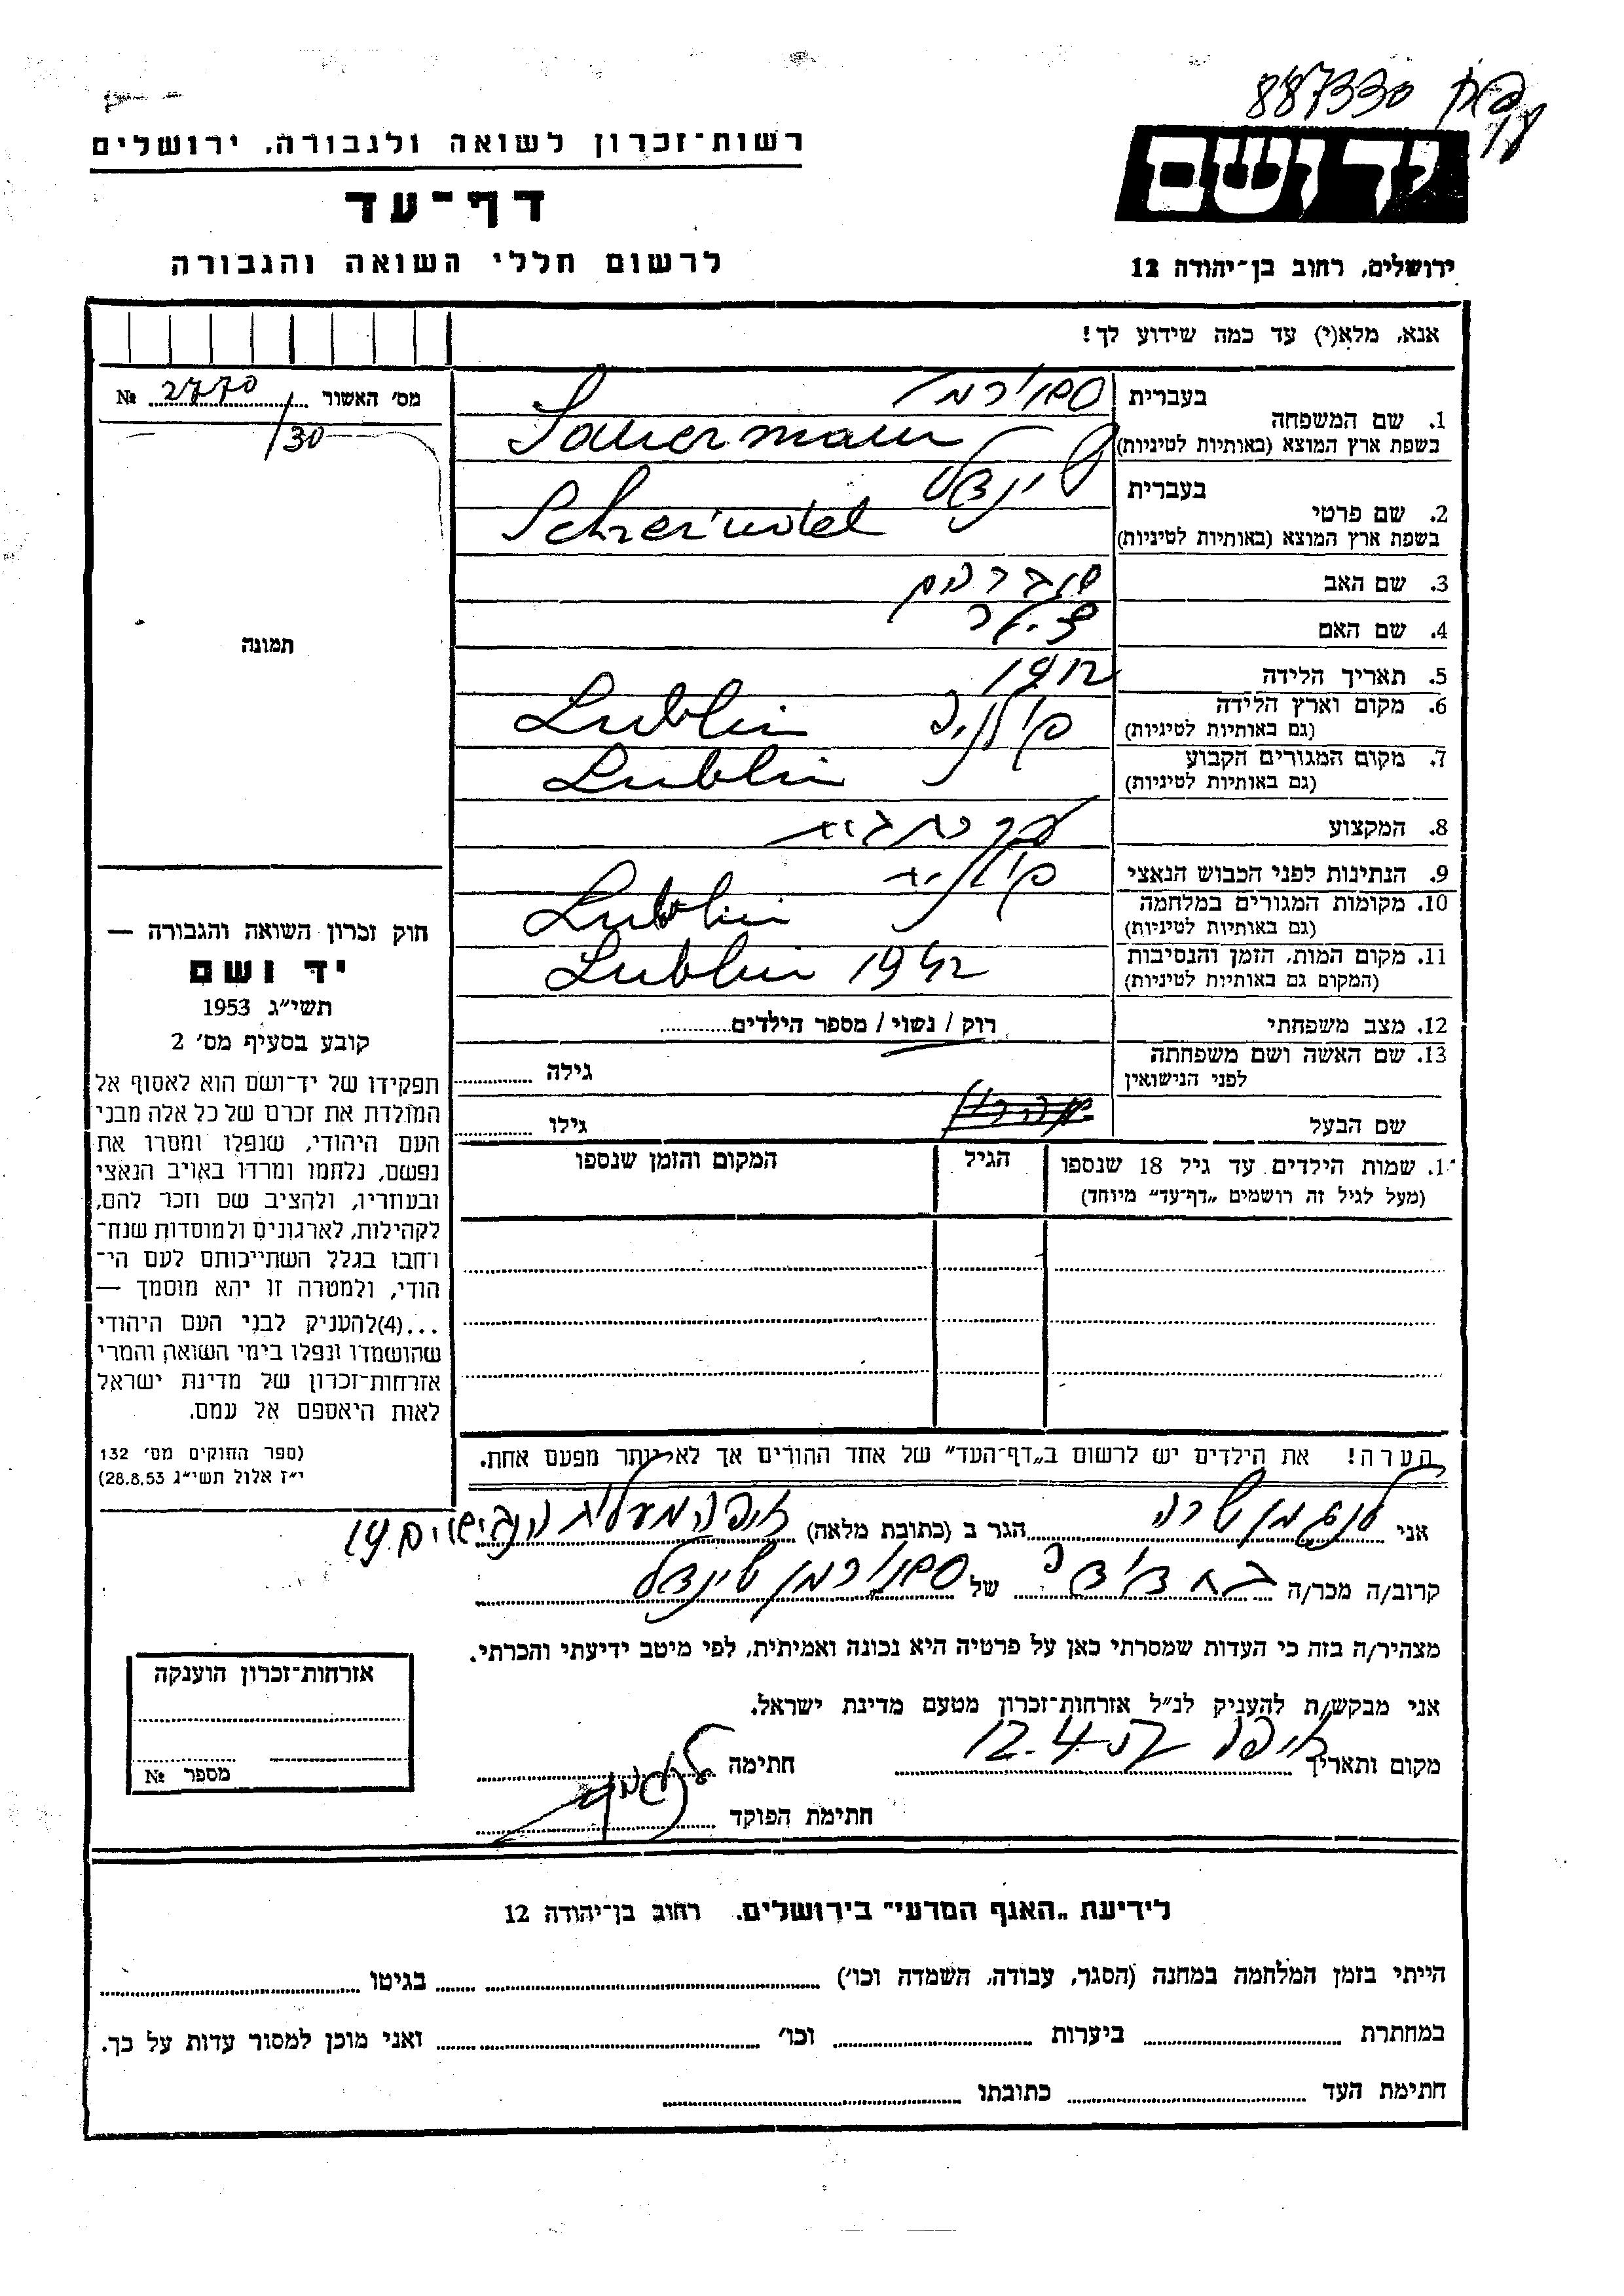 887330
רשות-זכרון לשואה ולגבורה, ירושלים
יד ושם
דף-עד
לרשום חללי השואה והגבורה
ירושלים, רחוב בן-יהודה 12
אנא, מלא(י) עד כמה שידוע לך!
מס' האשור № 2770/30
תמונה
1. שם המשפחה
בעברית
בשפת ארץ המוצא (באותיות לטיניות) Sauermann
2. שם פרטי
בעברית שינדל
בשפת ארץ המוצא (באותיות לטיניות) Scheindel
3. שם האב אברהם
4. שם האם
5. תאריך הלידה 1912
6. מקום וארץ הלידה
(גם באותיות לטיניות) פולין Lublin
7. מקום המגורים הקבוע
(גם באותיות לטיניות) Lublin
8. המקצוע עקרת בית
9. הנתינות לפני הכבוש הנאצי
10. מקומות המגורים במלחמה
(גם באותיות לטיניות) Lublin
11. מקום המות, הזמן והנסיבות
(המקום גם באותיות לטיניות) Lublin 1942
12. מצב משפחתי רוק / נשוי / מספר הילדים
13. שם האשה ושם משפחתה
לפני הנישואין גילה
שם הבעל גילו
1. שמות הילדים עד גיל 18 שנספו
(מעל לגיל זה רושמים „דף-עד" מיוחד)
הגיל
המקום והזמן שנספו
חוק זכרון השואה והגבורה —
יד ושם
תשי״ג 1953
קובע בסעיף מס' 2
תפקידו של יד-ושם הוא לאסוף אל
המולדת את זכרם של כל אלה מבני
העם היהודי, שנפלו ומסרו את
נפשם, נלחמו ומרדו באויב הנאצי
ובעוזריו, ולהציב שם וזכר להם,
לקהילות, לארגונים ולמוסדות שנח־
רחבו בגלל השתייכותם לעם הי־
הודי, ולמטרה זו יהא מוסמך —
...(4)להעניק לבני העם היהודי
שהושמדו ונפלו בימי השואה והמרי
אזרחות-זכרון של מדינת ישראל
לאות היאספם אל עמם.
(ספר החוקים מס' 132
י״ז אלול תשי״ג 28.8.53)
הערה! את הילדים יש לרשום ב„דף-העד" של אחד ההורים אך לא יותר מפעם אחת.
אני שרה הגר ב (כתובת מלאה) חיפה 19
קרוב/ה מכר/ה בת דודה של שינדל
מצהיר/ה בזה כי העדות שמסרתי כאן על פרטיה היא נכונה ואמיתית, לפי מיטב ידיעתי והכרתי.
אני מבקש/ת להעניק לנ״ל אזרחות-זכרון מטעם מדינת ישראל.
מקום ותאריך חיפה 12.4.57 חתימה
חתימת הפוקד
אזרחות-זכרון הוענקה
מספר №
לידיעת „האגף המדעי" בירושלים, רחוב בן-יהודה 12
הייתי בזמן המלחמה במחנה (הסגר, עבודה, השמדה וכו') בגיטו
במחתרת ביערות וכו' ואני מוכן למסור עדות על כך.
חתימת העד כתובתו